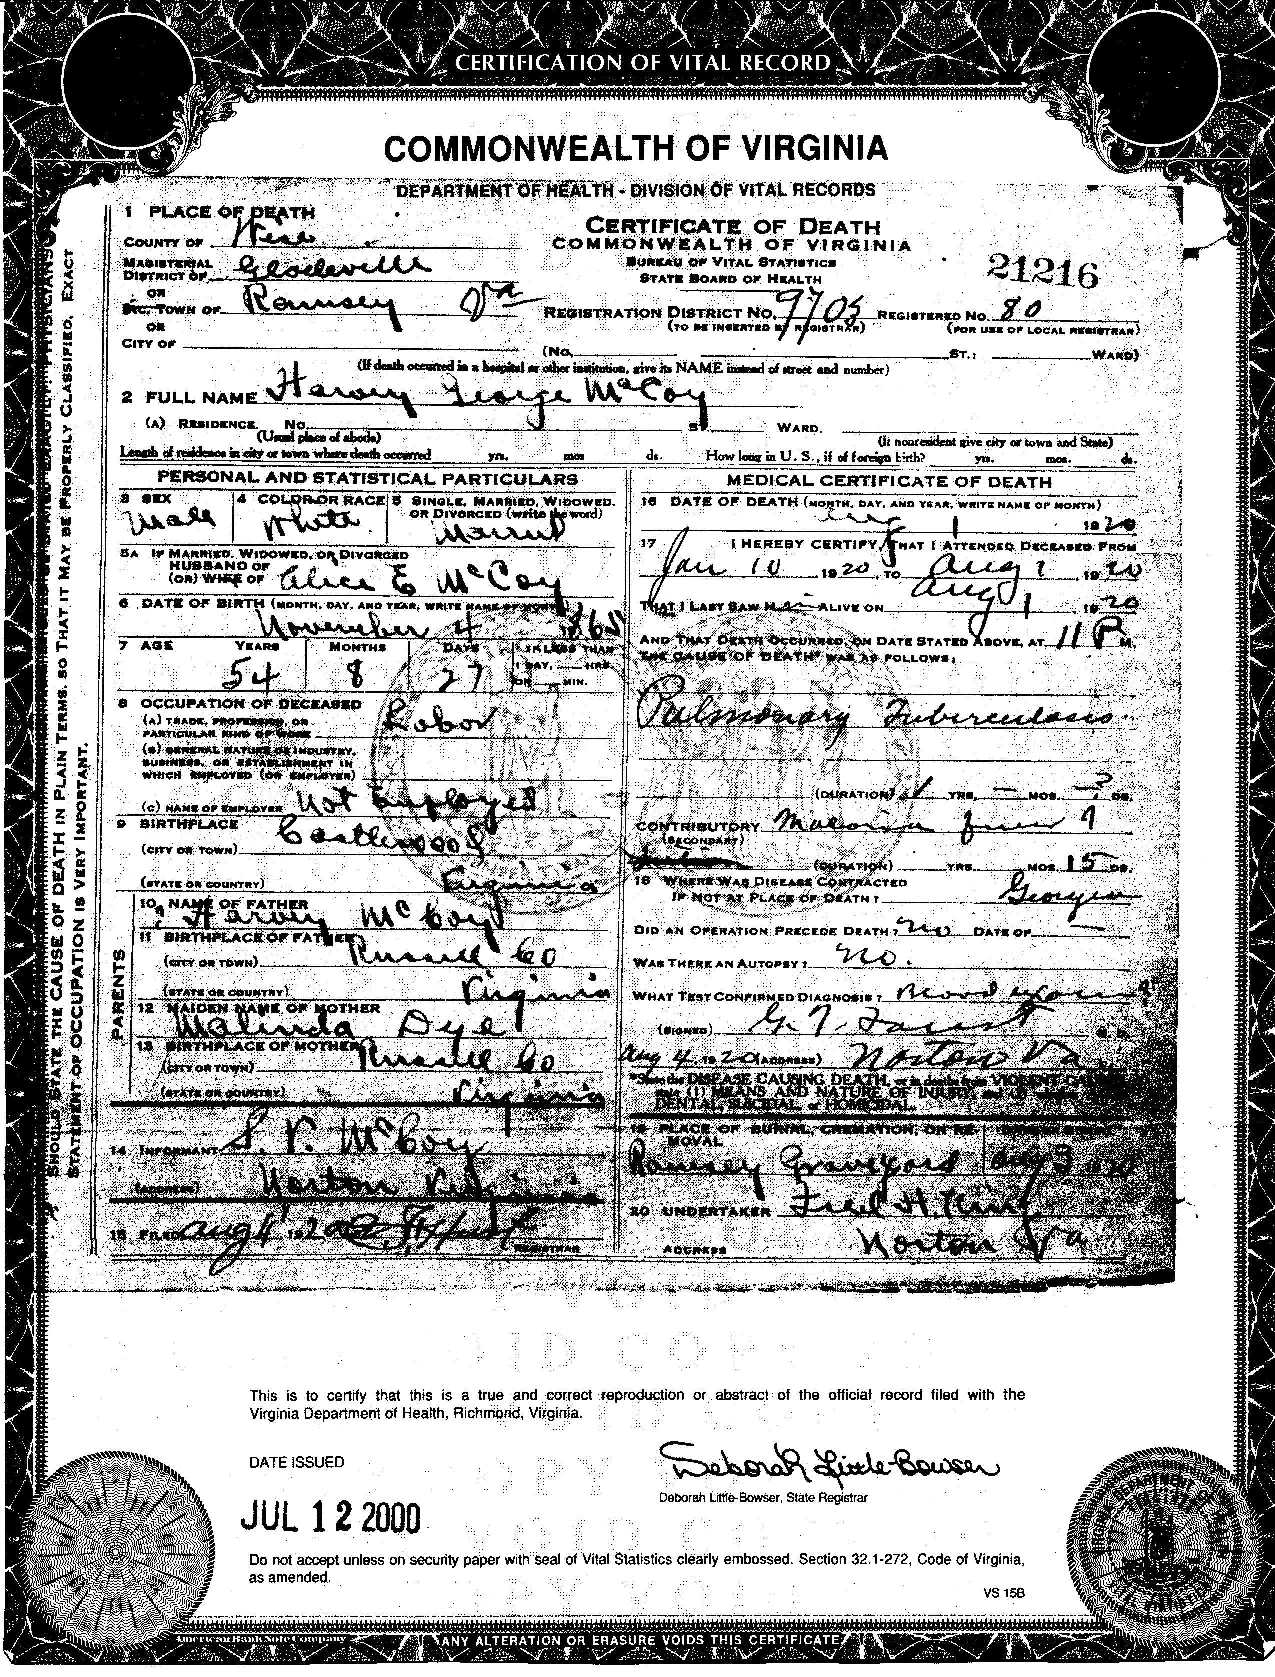 CERTIFICATION OF VITAL RECORD
COMMONWEALTH OF VIRGINIA
DEPARTMENT OF HEALTH - DIVISION OF VITAL RECORDS
1 PLACE OF DEATH
COUNTY OF Wise
MAGISTERIAL DISTRICT OF Gladeville
OR
INC. TOWN OF Ramsey Va
OR
CITY OF
CERTIFICATE OF DEATH
COMMONWEALTH OF VIRGINIA
BUREAU OF VITAL STATISTICS
STATE BOARD OF HEALTH
21216
REGISTRATION DISTRICT NO. 9705 REGISTERED NO. 80
(TO BE INSERTED BY REGISTRAR) (FOR USE OF LOCAL REGISTRAR)
(No. ST.; WARD)
(If death occurred in a hospital or other institution, give its NAME instead of street and number)
2 FULL NAME Harvey George McCoy
(A) RESIDENCE. No. ST. WARD.
(Usual place of abode) (If nonresident give city or town and State)
Length of residence in city or town where death occurred yrs. mos. ds. How long in U. S., if of foreign birth? yrs. mos. ds.
PERSONAL AND STATISTICAL PARTICULARS
3 SEX 4 COLOR OR RACE 5 SINGLE, MARRIED, WIDOWED, OR DIVORCED (write the word)
Male White Married
5A IF MARRIED, WIDOWED, OR DIVORCED
HUSBAND OF
(OR) WIFE OF Alice E McCoy
6 DATE OF BIRTH (MONTH, DAY, AND YEAR, WRITE NAME OF MONTH)
November 4 1865
7 AGE YEARS MONTHS DAYS IF LESS THAN
1 DAY, HRS.
OR MIN.
54 8 27
8 OCCUPATION OF DECEASED
(A) TRADE, PROFESSION, OR
PARTICULAR KIND OF WORK Labor
(B) GENERAL NATURE OF INDUSTRY,
BUSINESS, OR ESTABLISHMENT IN
WHICH EMPLOYED (OR EMPLOYER)
(C) NAME OF EMPLOYER Not Employed
9 BIRTHPLACE
(CITY OR TOWN) Castlewood
(STATE OR COUNTRY) Virginia
PARENTS
10 NAME OF FATHER
Harvey McCoy
11 BIRTHPLACE OF FATHER
(CITY OR TOWN) Russell Co
(STATE OR COUNTRY) Virginia
12 MAIDEN NAME OF MOTHER
Malinda Dye
13 BIRTHPLACE OF MOTHER
(CITY OR TOWN) Russell Co
(STATE OR COUNTRY) Virginia
14 INFORMANT S. V. McCoy
(ADDRESS) Norton Virginia
15 FILED Aug 4 1920
REGISTRAR
MEDICAL CERTIFICATE OF DEATH
16 DATE OF DEATH (MONTH, DAY, AND YEAR, WRITE NAME OF MONTH)
Aug 1 1920
17 I HEREBY CERTIFY, THAT I ATTENDED DECEASED FROM
Jan 10 1920, TO Aug 1, 1920
THAT I LAST SAW HIM ALIVE ON Aug 1 1920
AND THAT DEATH OCCURRED, ON DATE STATED ABOVE, AT 11 P M.
THE CAUSE OF DEATH* WAS AS FOLLOWS:
Pulmonary Tuberculosis
(DURATION) 1 YRS. - MOS. ? DS.
CONTRIBUTORY Malaria
(SECONDARY)
(DURATION) YRS. MOS. 15 DS.
18 WHERE WAS DISEASE CONTRACTED
IF NOT AT PLACE OF DEATH? Georgia
DID AN OPERATION PRECEDE DEATH? No DATE OF -
WAS THERE AN AUTOPSY? No.
WHAT TEST CONFIRMED DIAGNOSIS? Blood
(SIGNED) M. D.
Aug 4, 1920 (ADDRESS) Norton Va
*State the DISEASE CAUSING DEATH, or in deaths from VIOLENT CAUSES,
state (1) MEANS AND NATURE OF INJURY, and (2) whether
ACCIDENTAL, SUICIDAL, or HOMICIDAL.
19 PLACE OF BURIAL, CREMATION, OR REMOVAL
Ramsey Graveyard Aug 3 1920
20 UNDERTAKER Fred H. King
ADDRESS Norton Va
SHOULD STATE THE CAUSE OF DEATH IN PLAIN TERMS, SO THAT IT MAY BE PROPERLY CLASSIFIED. EXACT
STATEMENT OF OCCUPATION IS VERY IMPORTANT.
This is to certify that this is a true and correct reproduction or abstract of the official record filed with the
Virginia Department of Health, Richmond, Virginia.
DATE ISSUED
JUL 12 2000
Deborah Little-Bowser
Deborah Little-Bowser, State Registrar
Do not accept unless on security paper with seal of Vital Statistics clearly embossed. Section 32.1-272, Code of Virginia,
as amended.
VS 15B
American Bank Note Company
ANY ALTERATION OR ERASURE VOIDS THIS CERTIFICATE